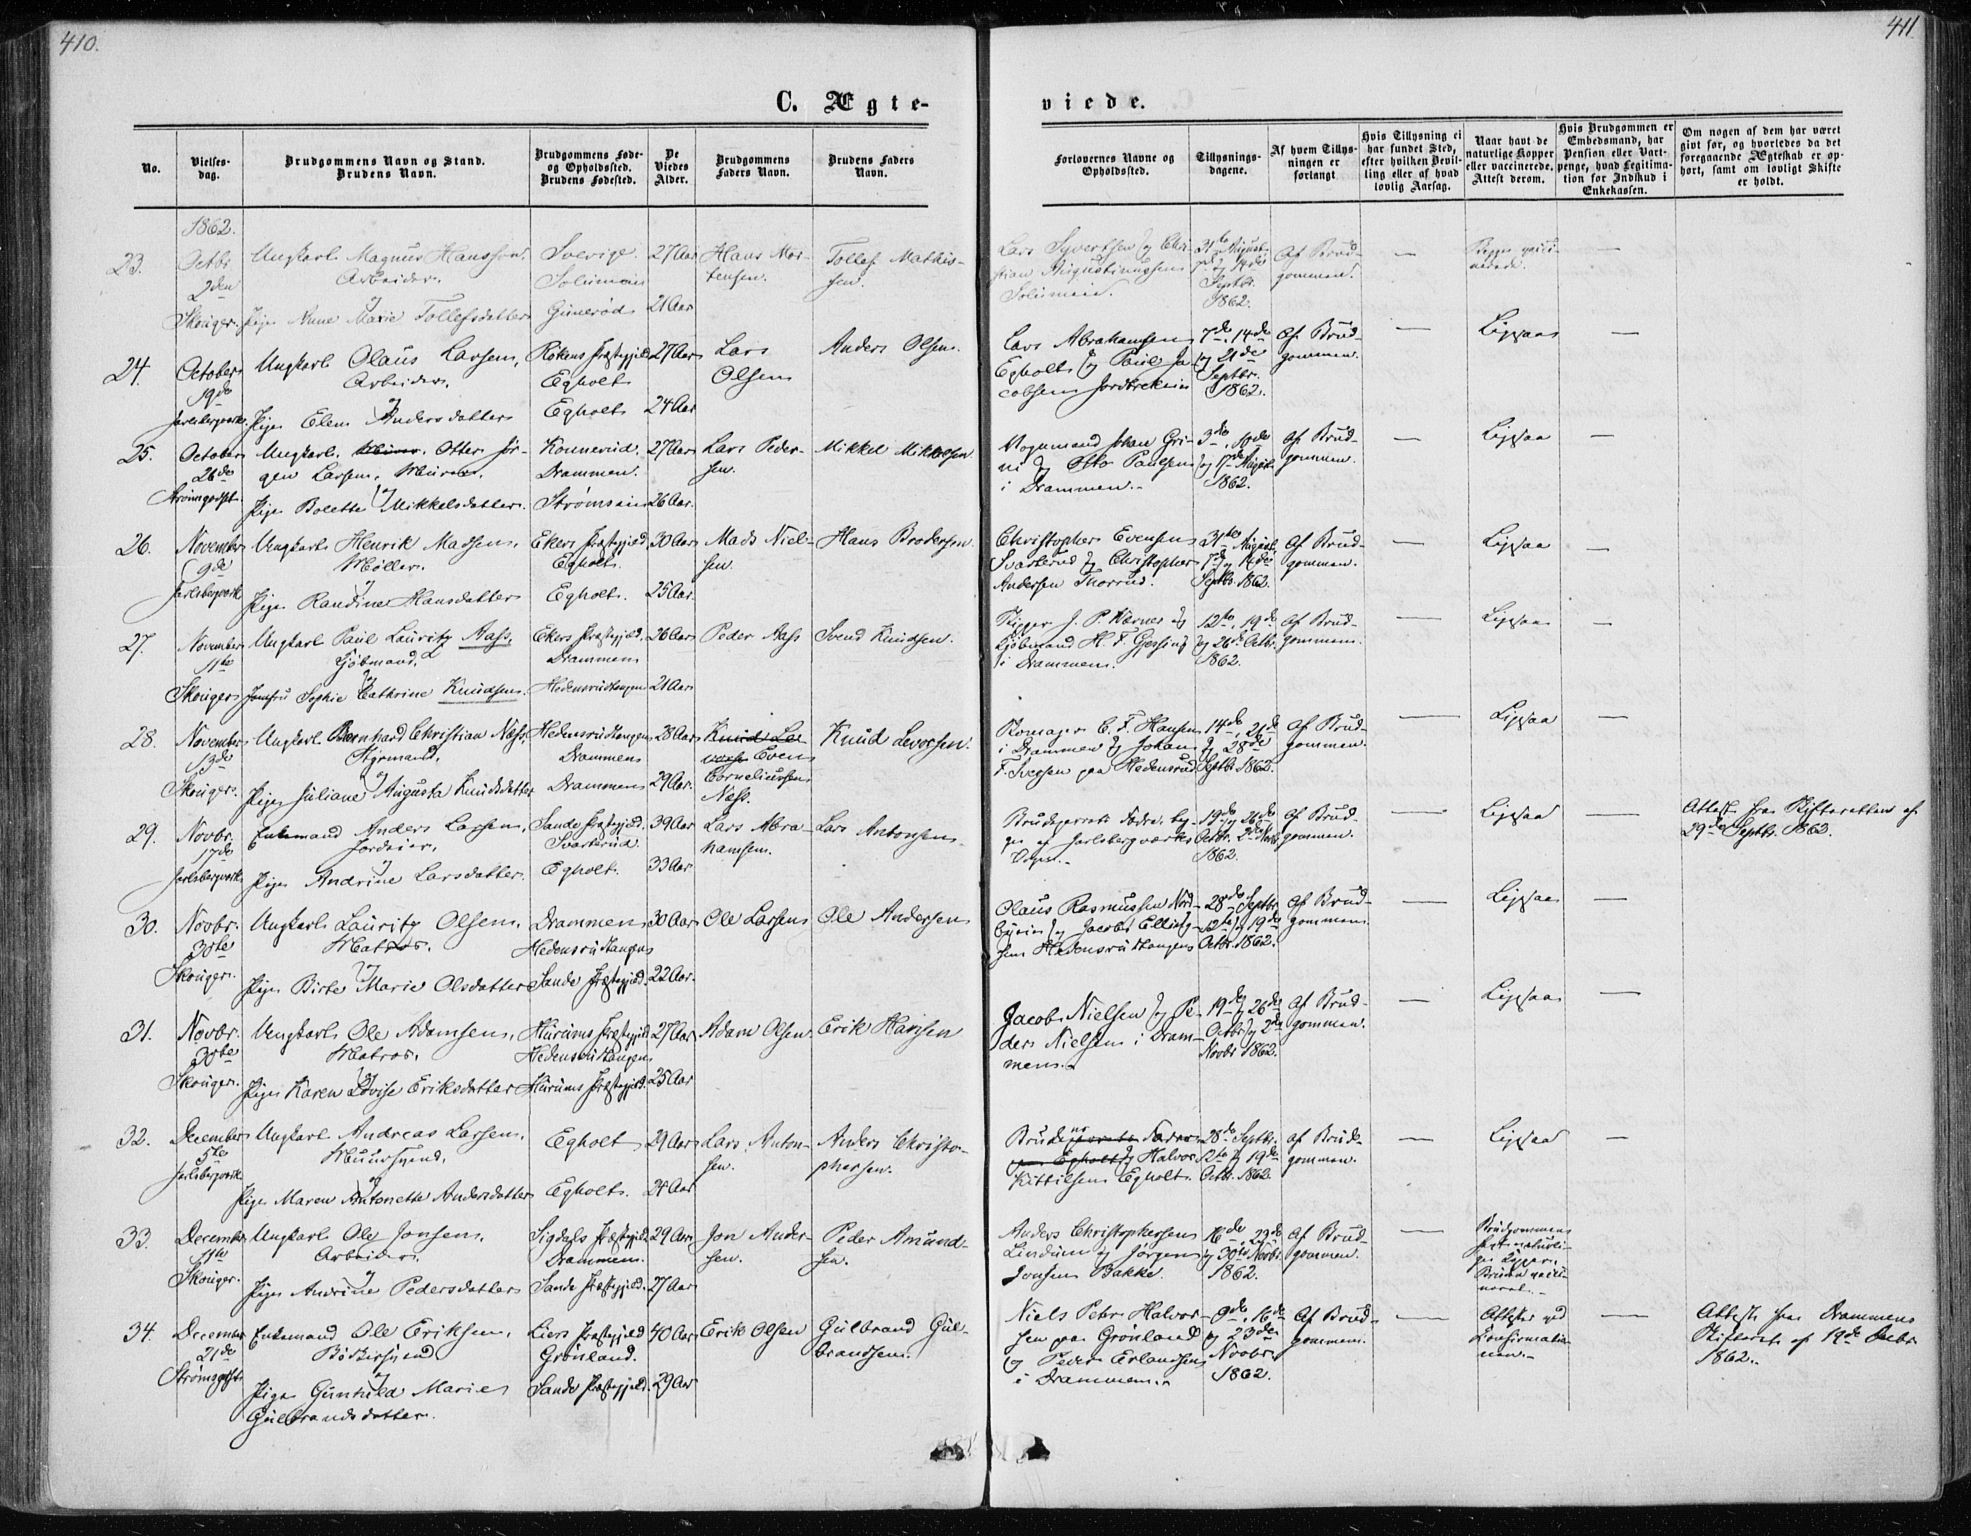 410.
411
C. Ægte-
viede.
No.
Vielses-
dag.
Brudgommens Navn og Stand.
Brudens Navn.
Brudgommens Føde-
og Opholdssted.
Brudens Fødested.
De
Viedes
Alder.
Brudgommens
Faders Navn.
Brudens Faders
Navn.
Forlovernes Navne og
Opholdssted.
Tillysnings-
dagene.
Af hvem Tillys-
ningen er
forlangt
Hvis Tillysning ei
har fundet Sted,
efter hvilken Bevil-
ling eller af hvad
lovlig Aarsag.
Naar havt de
naturlige Kopper
eller vaccinerede.
Attest derom.
Hvis Brudgommen er
Embedsmand, har
Pension eller Vart-
penge, hvad Legitima-
tion for Indskud i
Enkekassen.
Om nogen af dem har været
gift før, og hvorledes da det
foregaaende Ægteskab er op-
hørt, samt om lovligt Skifte
er holdt.
1862.
23. Octbr 2den Skouger.
Ungkarl Magnus Hansson,
Arbeider,
Pige Anne Marie Tollefsdatter
Sverige.
Solumein
Gunerød
27 Aar
21 Aar
Hans Mor-
tensen.
Tollef Mathis-
sen.
Lars Syvertsen og Chri-
stian Augustinussen
Solumein.
31te August
7de og 14de
Septbr.
1862.
Af Brud-
gommen.
—
Begge vacci-
nerede.
—
24. October 19de Jarlsbergværk.
Ungkarl Olaus Larsen,
Arbeider,
og
Pige Elen Andersdatter
Røkens Præstegjeld
Egholt
Egholt
27 Aar
24 Aar
Lars
Olsen
Anders Olsen.
Lars Abrahamsen
Egholt og Paul Ja-
cobsen Jordbrekken
7de, 14de
og 21de
Septbr.
1862.
Af Brud-
gommen.
—
Ligesaa
—
25. October 26de Strømsgodset.
Ungkarl Otter Jør-
gen Larsen, Murer,
og
Pige Bolette Mikkelsdatter.
Konnerud.
Drammen.
Strømsein
27 Aar
26 Aar.
Lars Peder-
sen.
Mikkel Mikkelsen
Vognmand Johan Gri-
ni og Otto Paulsen
i Drammen.
3de, 10de
og 17de August
1862.
Af Brud-
gommen.
—
Ligesaa
—
26. November 9de Jarlsbergværk
Ungkarl Henrik Madsen,
Møller.
og
Pige Randine Hansdatter
Ekers Præstegjeld,
Egholt.
Egholt.
30 Aar
25 Aar.
Mads Niel-
sen.
Hans Brodersen.
Christopher Evensen
Svarterud og Christopher
Andersen Thorrud.
31te August,
7de og 14de
Septbr. 1862.
Af Brud-
gommen.
—
Ligesaa
—
27. November 11te Skouger
Ungkarl Paul Lauritz Aass,
Kjøbmand,
og
Jomfru Sophie Cathrine Knudsen.
Ekers Præstegjeld.
Drammen
Hedensrudtangen
26 Aar
21 Aar.
Peder Aass
Svend Knudsen.
Skipper J. P. Værnes og
Kjøbmand H. F. Gjessing
i Drammen.
12te, 19de
og 26de Octbr.
1862.
Af Brud-
gommen.
—
Ligesaa
—
28. November 13de Skouger.
Ungkarl Bernhard Christian Næss,
Styrmand,
og
Pige Juliane Augusta Knudsdatter
Hedensrudtangen
Drammen
Drammen
28 Aar
29 Aar.
Even
Corneliussen
Næss.
Knud Levorsen.
Komager C. F. Hansen
i Drammen og Johan
F. Svegsen paa Hedensrud
14de, 21de
og 28de
Septbr. 1862.
Af Brud-
gommen.
—
Ligesaa
—
29. Novbr. 17de Jarlsbergværk
Enkemand Anders Larsen,
Jordeier,
og
Pige Andrine Larsdatter.
Sande Præstegjeld.
Svarterud
Egholt
39 Aar
33 Aar
Lars Abra-
hamsen.
Lars Antonsen.
Brudeparrets Fædre beg-
ge af Jarlsbergværks
19de og 26de
Octbr. 2de Novbr.
1862.
Af Brud-
gommen.
—
Ligesaa
—
Attest fra Skifteretten af
29de Septbr. 1862.
30. Novbr. 30te Skouger.
Ungkarl Lauritz Olsen,
Matros.
og
Pige Birte Marie Olsdatter
Drammen
Hedensrudtangen
Sande Præstegjeld.
30 Aar
22 Aar.
Ole Larsen
Ole Andersen
Olaus Rasmussen Nord-
byein og Jacob Elling-
sen Hedensrudtangen
28de Septbr.
12te og 19de
Octbr. 1862.
Af Brud-
gommen.
—
Ligesaa
—
31. Novbr. 30te Skouger.
Ungkarl Ole Adamsen,
Matros.
og
Pige Karen Lovise Eriksdatter
Hurums Præstegjeld
Hedensrudtangen
Hurums Præstegjeld.
27 Aar
25 Aar
Adam Olsen
Erik Hansen
Jacob Nielsen og Pe-
ders Nielsen i Dram-
men.
19de og 26de
Octbr og 2de
Novbr 1862.
Af Brud-
gommen.
—
Ligesaa
—
32. December 5te Jarlsbergværk
Ungkarl Andreas Larsen,
Muursvend,
og
Pige Maren Antonette Andersdatter
Egholt
Egholt.
29 Aar
24 Aar
Lars Anton-
sen.
Anders Christo-
phersen.
og Halvor
Kittilsen Egholt.
28de Septbr.
12te og 19de
Octbr. 1862.
af Brud-
gommen.
—
Ligesaa
—
33. December 11te Skouger.
Ungkarl Ole Jonsen.
Arbeider.
og
Pige Andrine Pedersdatter
Sigdals Præstegjeld
Drammen.
Sande Præstegjeld.
29 Aar
27 Aar
Jon Ander-
sen.
Peder Amund-
sen.
Anders Christophersen
Lindum og Jørgen
Jonsen Bakke.
16de, 23de
og 30te Novbr.
1862.
Af Brud-
gommen.
—
Brudgommen
havt naturli-
ge Kopper.
Bruden vacci-
neret.
34. December 21de Strømsgodset
Enkemand Ole Eriksen,
Bødkersvend
og
Pige Gunhild Marie
Gulbrandsdatter.
Liers Præstegjeld
Grønland.
Sande Præstegjeld.
40 Aar
29 Aar
Erik Olsen
Gulbrand Gul-
brandsen.
Niels Peter Halvor-
sen paa Grønland
og Peder Erlandsen
i Drammen.
9de, 16de
og 23de
Novbr.
1862.
Af Brud-
gommen.
—
Attester ved
Confirmatio-
nen.
—
Attest fra Drammens
Skifteret af 19de Decbr
1862.